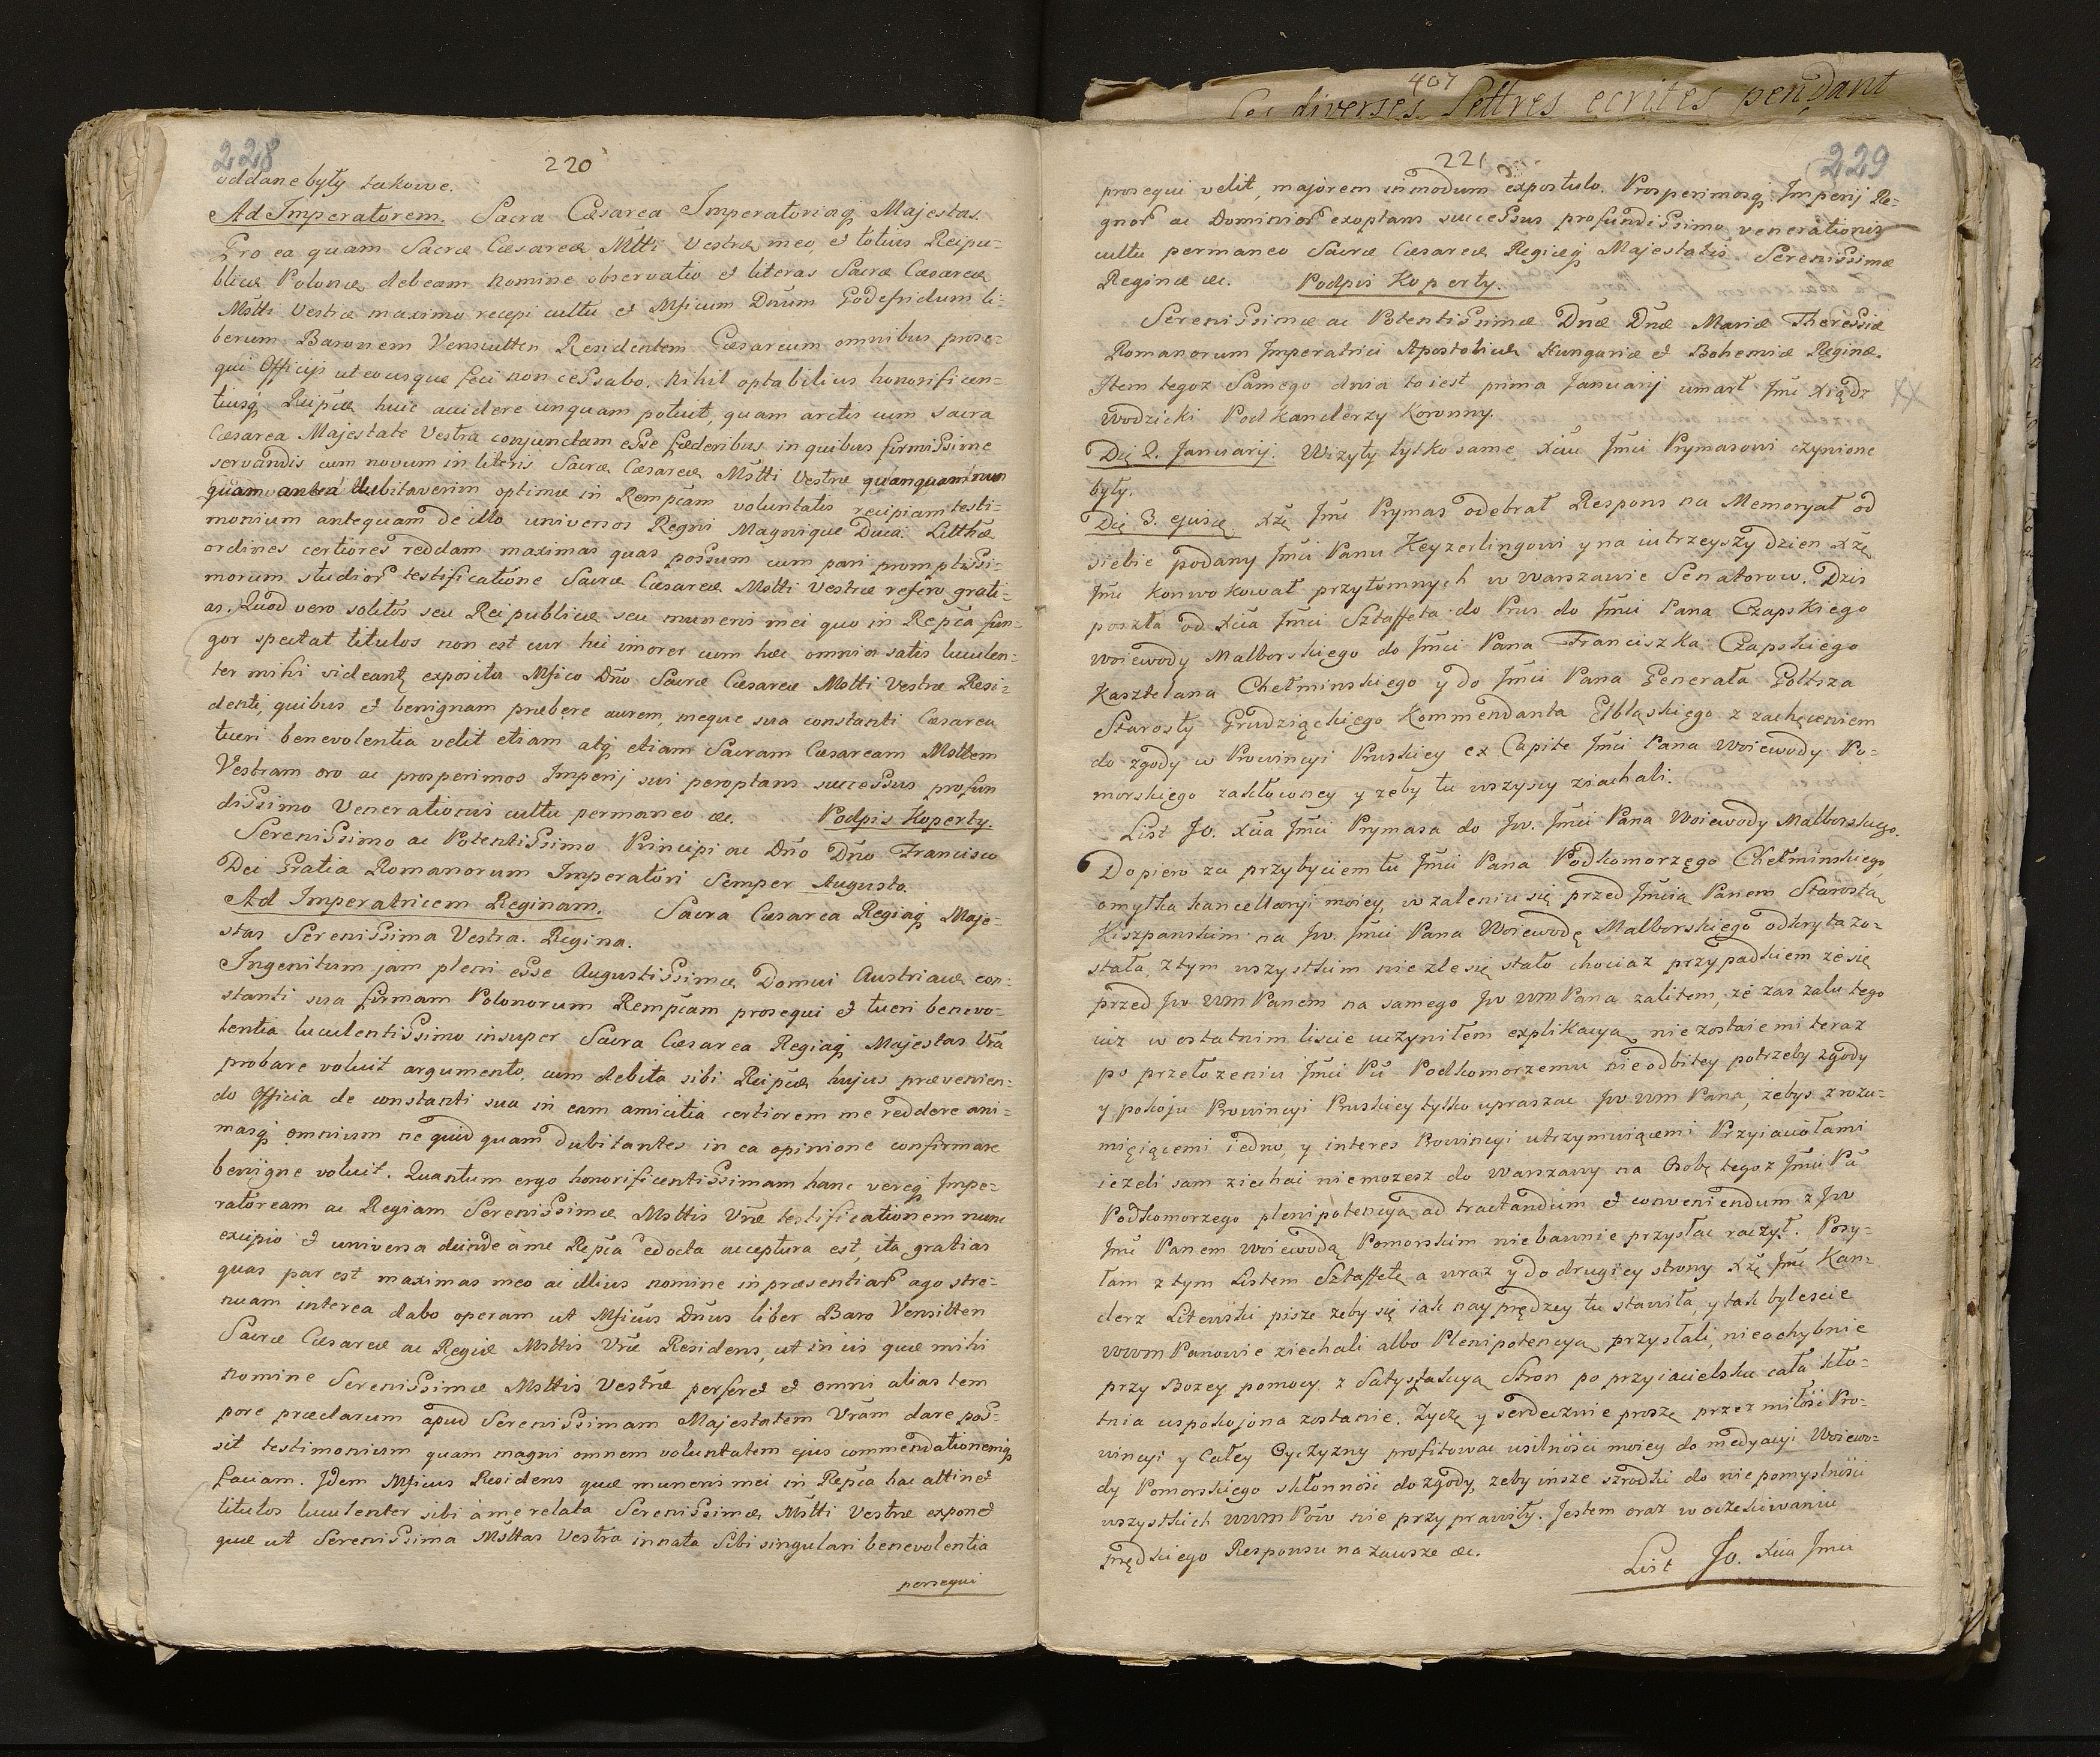 228
220
oddane były takowe.
Ad Imperatorem. Sacra Cæsarea Imperatoriaq̃ Majestas.
Pro ea quam Sacræ Cæsareæ Mtti Vestræ meo, et totius Reipu-
blicæ Polonæ debeam nomine observatio et literas Sacræ Cæsareæ
Mstti Vestræ maximo recepi cultu et Mficum Dnum Godefridum li-
berum Baronem Vensultten Residentem Cæsareum omnibus prose-
qui Officijs ut eousque feci non cessabo. Nihil optabilius honorificen-
tiusq̃ Reipcæ huic accidere unquam potuit, quam arctis cum Sacra
Cæsarea Majestate Vestra conjunctam esse fœderibus in quibus firmissime
servandis cum novum in literis Sacræ Cæsareæ Mstti Vestræ quanquam nun
quam antea dubitaverim optimæ in Rempcam voluntatis recipiam testi-
monium antequam de illo universos Regni Magnique Ducã. Litthæ
ordines certiores reddam maximas quas possum cum pari promptissi-
morum studior testificatione Sacræ Cæsareæ Mstti Vestræ refero grati-
as. Quod vero solitos seu Reipublicæ seu muneris mei quo in Repca fun-
gor spectat titulos non est cur hic imorer cum hæc omnia satis luculen-
ter mihi videant exposita Mfico Dno Sacræ Cæsareæ Mstti Vestræ Resi-
denti, quibus et benignam præbere aurem, meque sua constanti Cæsarea
tueri benevolentia velit etiam atq̃ etiam Sacram Cæsaream Msttem
Vestram oro ac prosperimos Imperij sui peroptans successus profun
dissimo Venerationis cultu permaneo &c. Podpis Koperty.
Serenissimo ac Potentissimo Principi ac Dno Dno Francisco
Dei Gratia Romanorum Imperatori Semper Augusto.
Ad Imperatricem Reginam. Sacra Cæsarea Regiaq̃ Maje-
stas Serenissima Vestra. Regina.
Ingenitum jam pleni esse Augustissimæ Domui Austriacæ con-
stanti sua firmam Polonorum Rempcam prosequi et tueri benevo-
lentia luculentissimo insuper Sacra Cæsarea Regiaq̃ Majestas Vra
probare voluit argumento, cum debita sibi Reipcæ hujus prævenien-
do Officia de constanti sua in eam amicitia certiorem me reddere ani-
masq̃ omnium ne quid quam dubitantes in ea opinione confirmare
benigne voluit. Quantum ergo honorificentissimam hanc vereq̃ Impe-
ratoream ac Regiam Serenissimæ Msttis Vræ testificationem nunc
excipio et universa deinde à me Repca edocta acceptura est, ita gratias
quas par est maximas meo ac illius nomine in præsentiar ago stre-
nuam interea dabo operam ut Mficus Dnus liber Baro Vensilten
Sacræ Cæsareæ ac Regiæ Msttis Vræ Residens, ut in iis quæ mihi
nomine Serenissimæ Msttis Vestræ perferet et omni alias tem
pore præclarum apud Serenissimam Majestatem Vram dare pos-
sit testimonium quam magni omnem voluntatem ejus commendationemq̃
faciam. Idem Mficus Residens quæ muneris mei in Repca hac attinet
titulos luculenter sibi à me relata Serenissimæ Mstti Vestræ exponet
quæ ut Serenissima Msttas Vestra innata Sibi singulari benevolentia
persequi
407
les diverses Lettres ecrites pendant
221
229
prosequi velit, majorem in modum expostulo. Prosperimosq̃ Imperij Re-
gnor ac Dominior exoptans successus profundissimo venerationis
cultu permaneo Sacræ Cæsareæ Regiæq̃ Majestatis Serenissimæ
Reginæ &c. Podpis Koperty.
Serenissimæ ac Potentissimæ Dnæ Dnæ Mariæ Theressiæ
Romanorum Imperatrici Apostolicæ Hungariæ et Bohemiæ Reginæ.
Item tegoz Samego dnia to iest prima Januarij umarł Jmć Xiądz
Wodzicki Podkanclerzy Koronny.
Die 2. Januarij. Wizyty tylko same Xciu Jmci Prymasowi czynione
były.
Die 3. ejusd. Xże Jmć Prymas odebrał Respons na Memoryał od
siebie podany Jmci Panu Keyzerlingowi y na iutrzeyszy dzien Xże
Jmć konwokował przytomnych w Warszawie Senatorow. Dzis
poszła od Xcia Jmci Sztaffeta do Prus do Jmci Pana Czapskiego
Woiewody Malborskiego do Jmci Pana Franciszka Czapskiego
Kasztelana Chełminskiego y do Jmci Pana Generała Goltza
Starosty Grudziąckiego Kommendanta Elbląskiego z zachęceniem
do zgody w Prowincyi Pruskiey ex Capite Jmci Pana Woiewody Po-
morskiego zakłóconey y żeby tu wszyscy ziachali.
List Jo. Xcia Jmci Prymasa do Jw. Jmci Pana Woiewody Malborskiego.
Dopiero za przybyciem tu Jmci Pana Podkomorzego Chełminskiego,
omyłka kancellaryi moiey, w zaleniu się przed Jmcią Panem Starostą
Kiszpanskim na Jw. Jmci Pana Woiewodę Malborskiego odkryta zo-
stała z tym wszystkim nie zle się stało chociaz przypadkiem że się
przed Jw WM Panem na samego Jw WM Pana zaliłem, że zas zalu tego
iuz w ostatnim liscie uczyniłem explikacyą, nie zostaie mi teraz
po przełozeniu Jmci Pu Podkomorzemu nieodbitey potrzeby zgody
y pokoju Prowincyi Pruskiey tylko upraszac Jw WM Pana, żebys z rozu-
mięiącemi iedno, y interes Prowincyi utrzymuiącemi Przyiaciołami
iezeli sam ziechac niemożesz do Warszawy na Osobę tegoz Jmci Pa
Podkomorzego plenipotencyą ad tractandum et conveniendum z Jw
Jmć Panem Woiewodą Pomorskim niebawnie przysłac raczył. Posy-
łam z tym Listem Sztaffetę a wraz y do drugiey strony Xże Jmć Kan-
clerz Litewski pisze żeby się iak nayprędzey tu stawiła, y tak bylescie
WWM Panowie ziechali albo Plenipotencyą przysłali, nieochybnie
przy Bozey pomocy z Satysfakcyą Stron po przyiacielsku cała kło-
tnia uspokojona zostanie. Zyczę y serdecznie proszę przez miłość Pro-
wincyi y Całey Oyczyzny profitowac usilności moiey do medyacyi Woiewo-
dy Pomorskiego skłonności do zgody, zeby insze szrodki do niepomyslności
wszystkich WWM Pow nie przyprawiły. Jestem oraz w oczekiwaniu
prędkiego Responsu na zawsze &c.
List Jo. Xcia Jmci